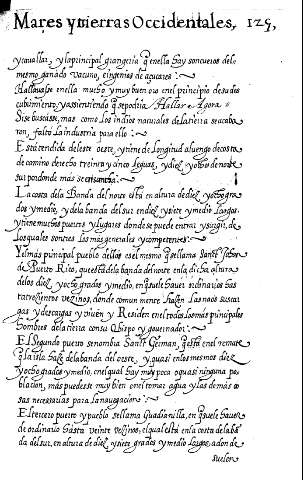 Mares y tierras Occidentales, 125,
y cauallar, y la principal grangeria q̃ en ella hay son cueros del o
mesmo ganado vacuno, e ingenios de açucares:~
Hallauase en ella mucho y muy buen oro en el principio de su des
cubrimiento, y assientiendo q̃ se podria Hallar Agora
Si se buscasse, mas como los indios naturales de la tierra se acaba
ron, faltó la industria para ello:~
Estiendida del este oeste, y tiene de Longitud o luengo de costa
de camino derecho treinta y cinco leguas, y diez y ocho de norte
sur por donde más se ensancha:~
La costa de la Banda del norte está en altura de diez y ocho gra
dos y medio, y de la banda del sur en diez y siete y medio largos.
y tiene muchos puertos y lugares donde se puede entrar y surgir, de
los quales son tres los más generales y competentes:~
Y el más principal pueblo dellos es el mesmo q̃ se llama Sanct Joan
de Puerto Rico, que está de la banda del norte en la dicha altura
de los diez y ocho grados y medio, en q̃ suele hauer ordinarios has
ta trecientos vezinos, donde comun mente hazen las naos sus car
gas y descargas y viuen y Residen en el todos los más principales
hombres de la tierra con su Obispo y gouernador:~
El Segundo puerto se nombra Sanct German, q̃ está en el remate
q̃ la isla haze de la banda del oeste, y quasi en los mesmos diez
y ocho grados y medio, en el qual hay muy poca o quasi ninguna po
blacion, más puedesse muy bien en el tomar agua y las demás co
sas necesarias para la nauegacion:~
El tercero puerto y pueblo se llama Guadianilla, en q̃ suele hauer
de ordinario hasta veinte vezinos, el qual está en la costa de la ba
da del sur, en altura de diez y siete grados y medio largos, adonde
suelen